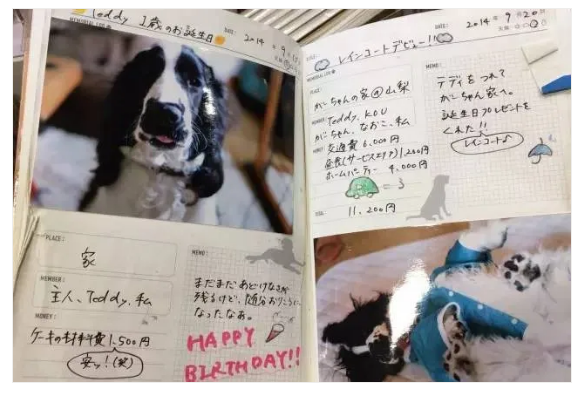 Teddy 1歳のお誕生日
DATE: 2014. 9
PLACE:
家
MEMBER:
主人、Teddy、私
MONEY:
ケーキの材料費 1,500円
安ッ！(笑)
MEMO:
まだまだあどけなさが
残るけど、随分おりこうに
なったなぁ。
HAPPY
BIRTHDAY!!
DATE: 2014. 9. 20
レインコートデビュー!!
PLACE:
がじちゃんの家@山梨
MEMBER:
Teddy、KOU
がじちゃん、なおこ、私
MONEY:
交通費 6,000円
昼食(サービスエリア) 1,200円
ホームパーティー 4,000円
TOTAL:
11,200円
MEMO:
テディをつれて
がじちゃん家へ。
誕生日プレゼントを
くれた!!
レインコート♪